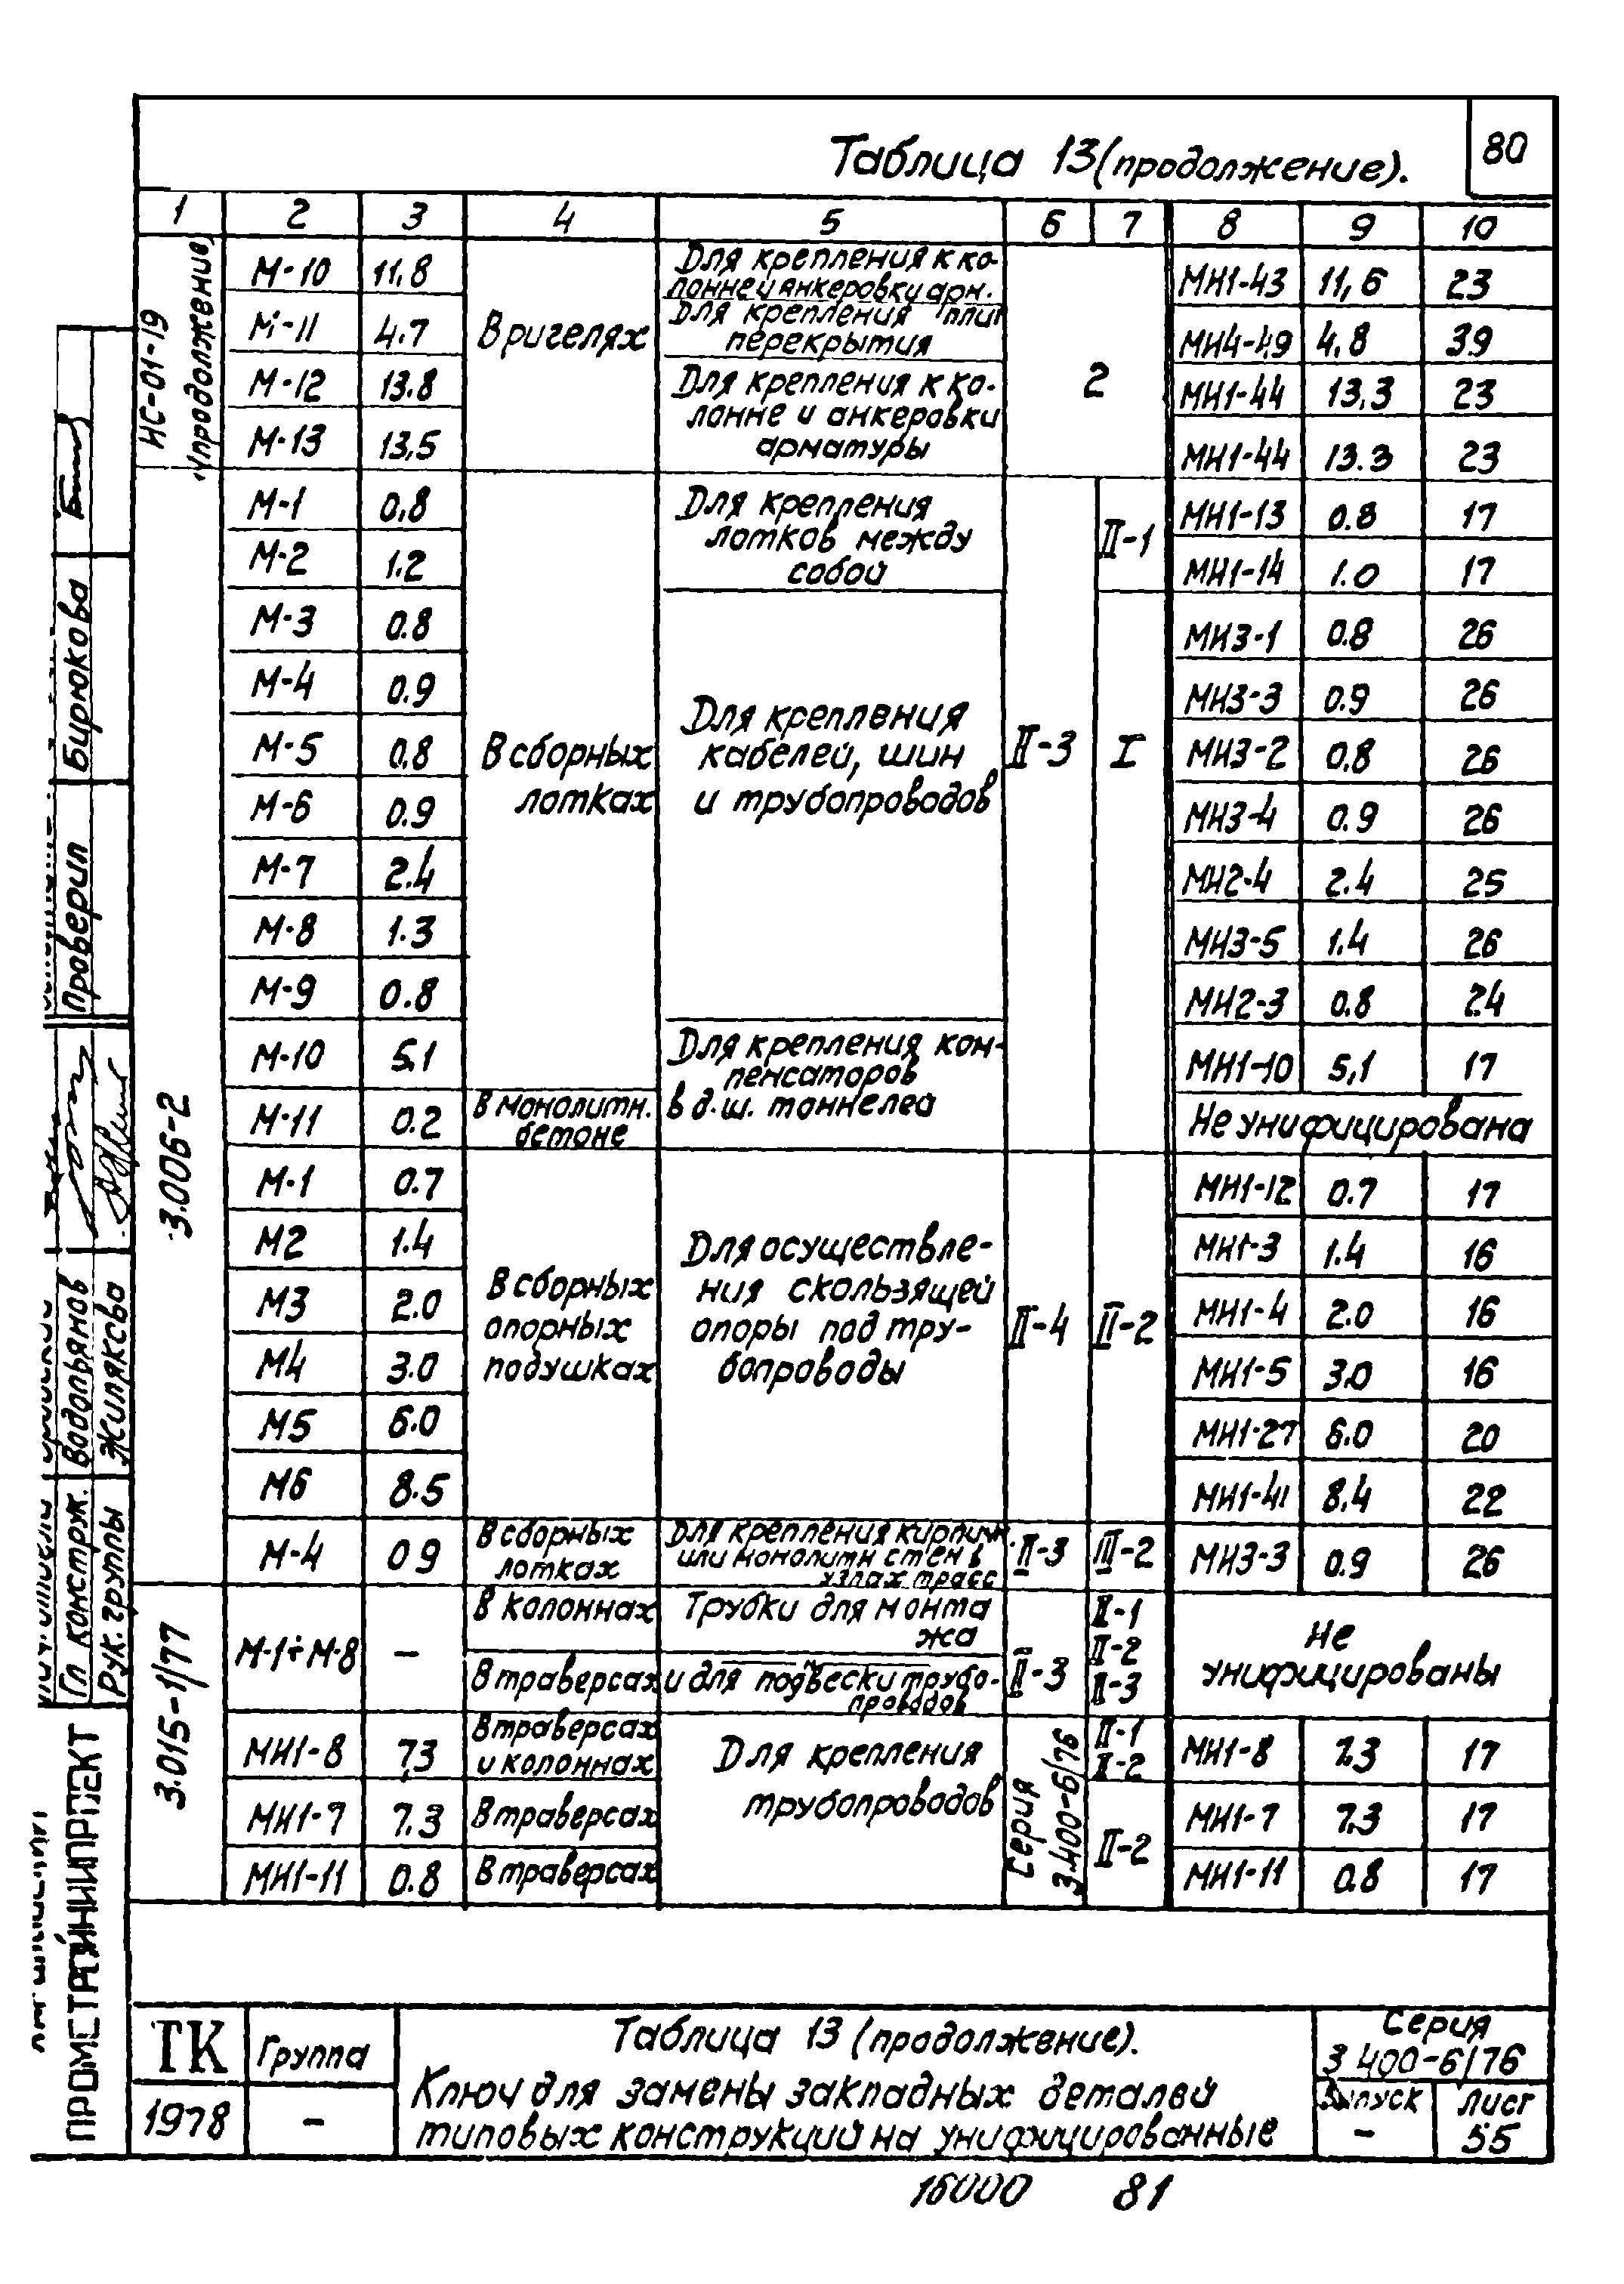 80
Таблица 13 (продолжение).
1 2 3 4 5 6 7 8 9 10
ИС-01-19 (продолжение)
М-10 11,8 В ригелях Для крепления к ко-
лонне и анкеровки арм. 2 МН1-43 11,6 23
М-11 4.7 Для крепления плит
перекрытия МН4-49 4.8 39
М-12 13.8 Для крепления к ко-
лонне и анкеровки
арматуры МН1-44 13,3 23
М-13 13,5 МН1-44 13.3 23
3.006-2
М-1 0,8 В сборных
лотках Для крепления
лотков между
собой II-3 II-1 МН1-13 0.8 17
М-2 1.2 МН1-14 1.0 17
М-3 0.8 Для крепления
кабелей, шин
и трубопроводов I МН3-1 0.8 26
М-4 0.9 МН3-3 0.9 26
М-5 0.8 МН3-2 0.8 26
М-6 0.9 МН3-4 0.9 26
М-7 2.4 МН2-4 2.4 25
М-8 1.3 МН3-5 1.4 26
М-9 0.8 МН2-3 0.8 24
М-10 5,1 Для крепления ком-
пенсаторов МН1-10 5,1 17
М-11 0.2 В монолитн.
бетоне в д.ш. тоннелей Не унифицирована
М-1 0.7 В сборных
опорных
подушках Для осуществле-
ния скользящей
опоры под тру-
бопроводы II-4 II-2 МН1-12 0.7 17
М2 1.4 МН1-3 1.4 16
М3 2.0 МН1-4 2.0 16
М4 3.0 МН1-5 3.0 16
М5 6.0 МН1-27 6.0 20
М6 8.5 МН1-41 8.4 22
М-4 0 9 В сборных
лотках Для крепления кирпичн
или монолитн стен в
узлах трасс II-3 III-2 МН3-3 0.9 26
3.015-1/77
М-1÷М-8 — В колоннах Трубки для монта
жа II-3 II-1
II-2
II-3 Не
унифицированы
В траверсах и для подвески трубо-
проводов
МН1-8 7,3 В траверсах
и колоннах Для крепления
трубопроводов Серия
3.400-6/76 II-1
II-2 МН1-8 7.3 17
МН1-7 7.3 В траверсах II-2 МН1-7 7.3 17
МН1-11 0.8 В траверсах МН1-11 0.8 17
ТК Группа
1978 –
Таблица 13 (продолжение).
Ключ для замены закладных деталей
типовых конструкций на унифицированные
Серия
3 400-6/76
Выпуск Лист
– 55
16000 81
Проверил Бирюкова
Гл конструк. Водопьянов
Рук. группы Жиляксва
ПРОМСТРОЙНИИПРОЕКТ